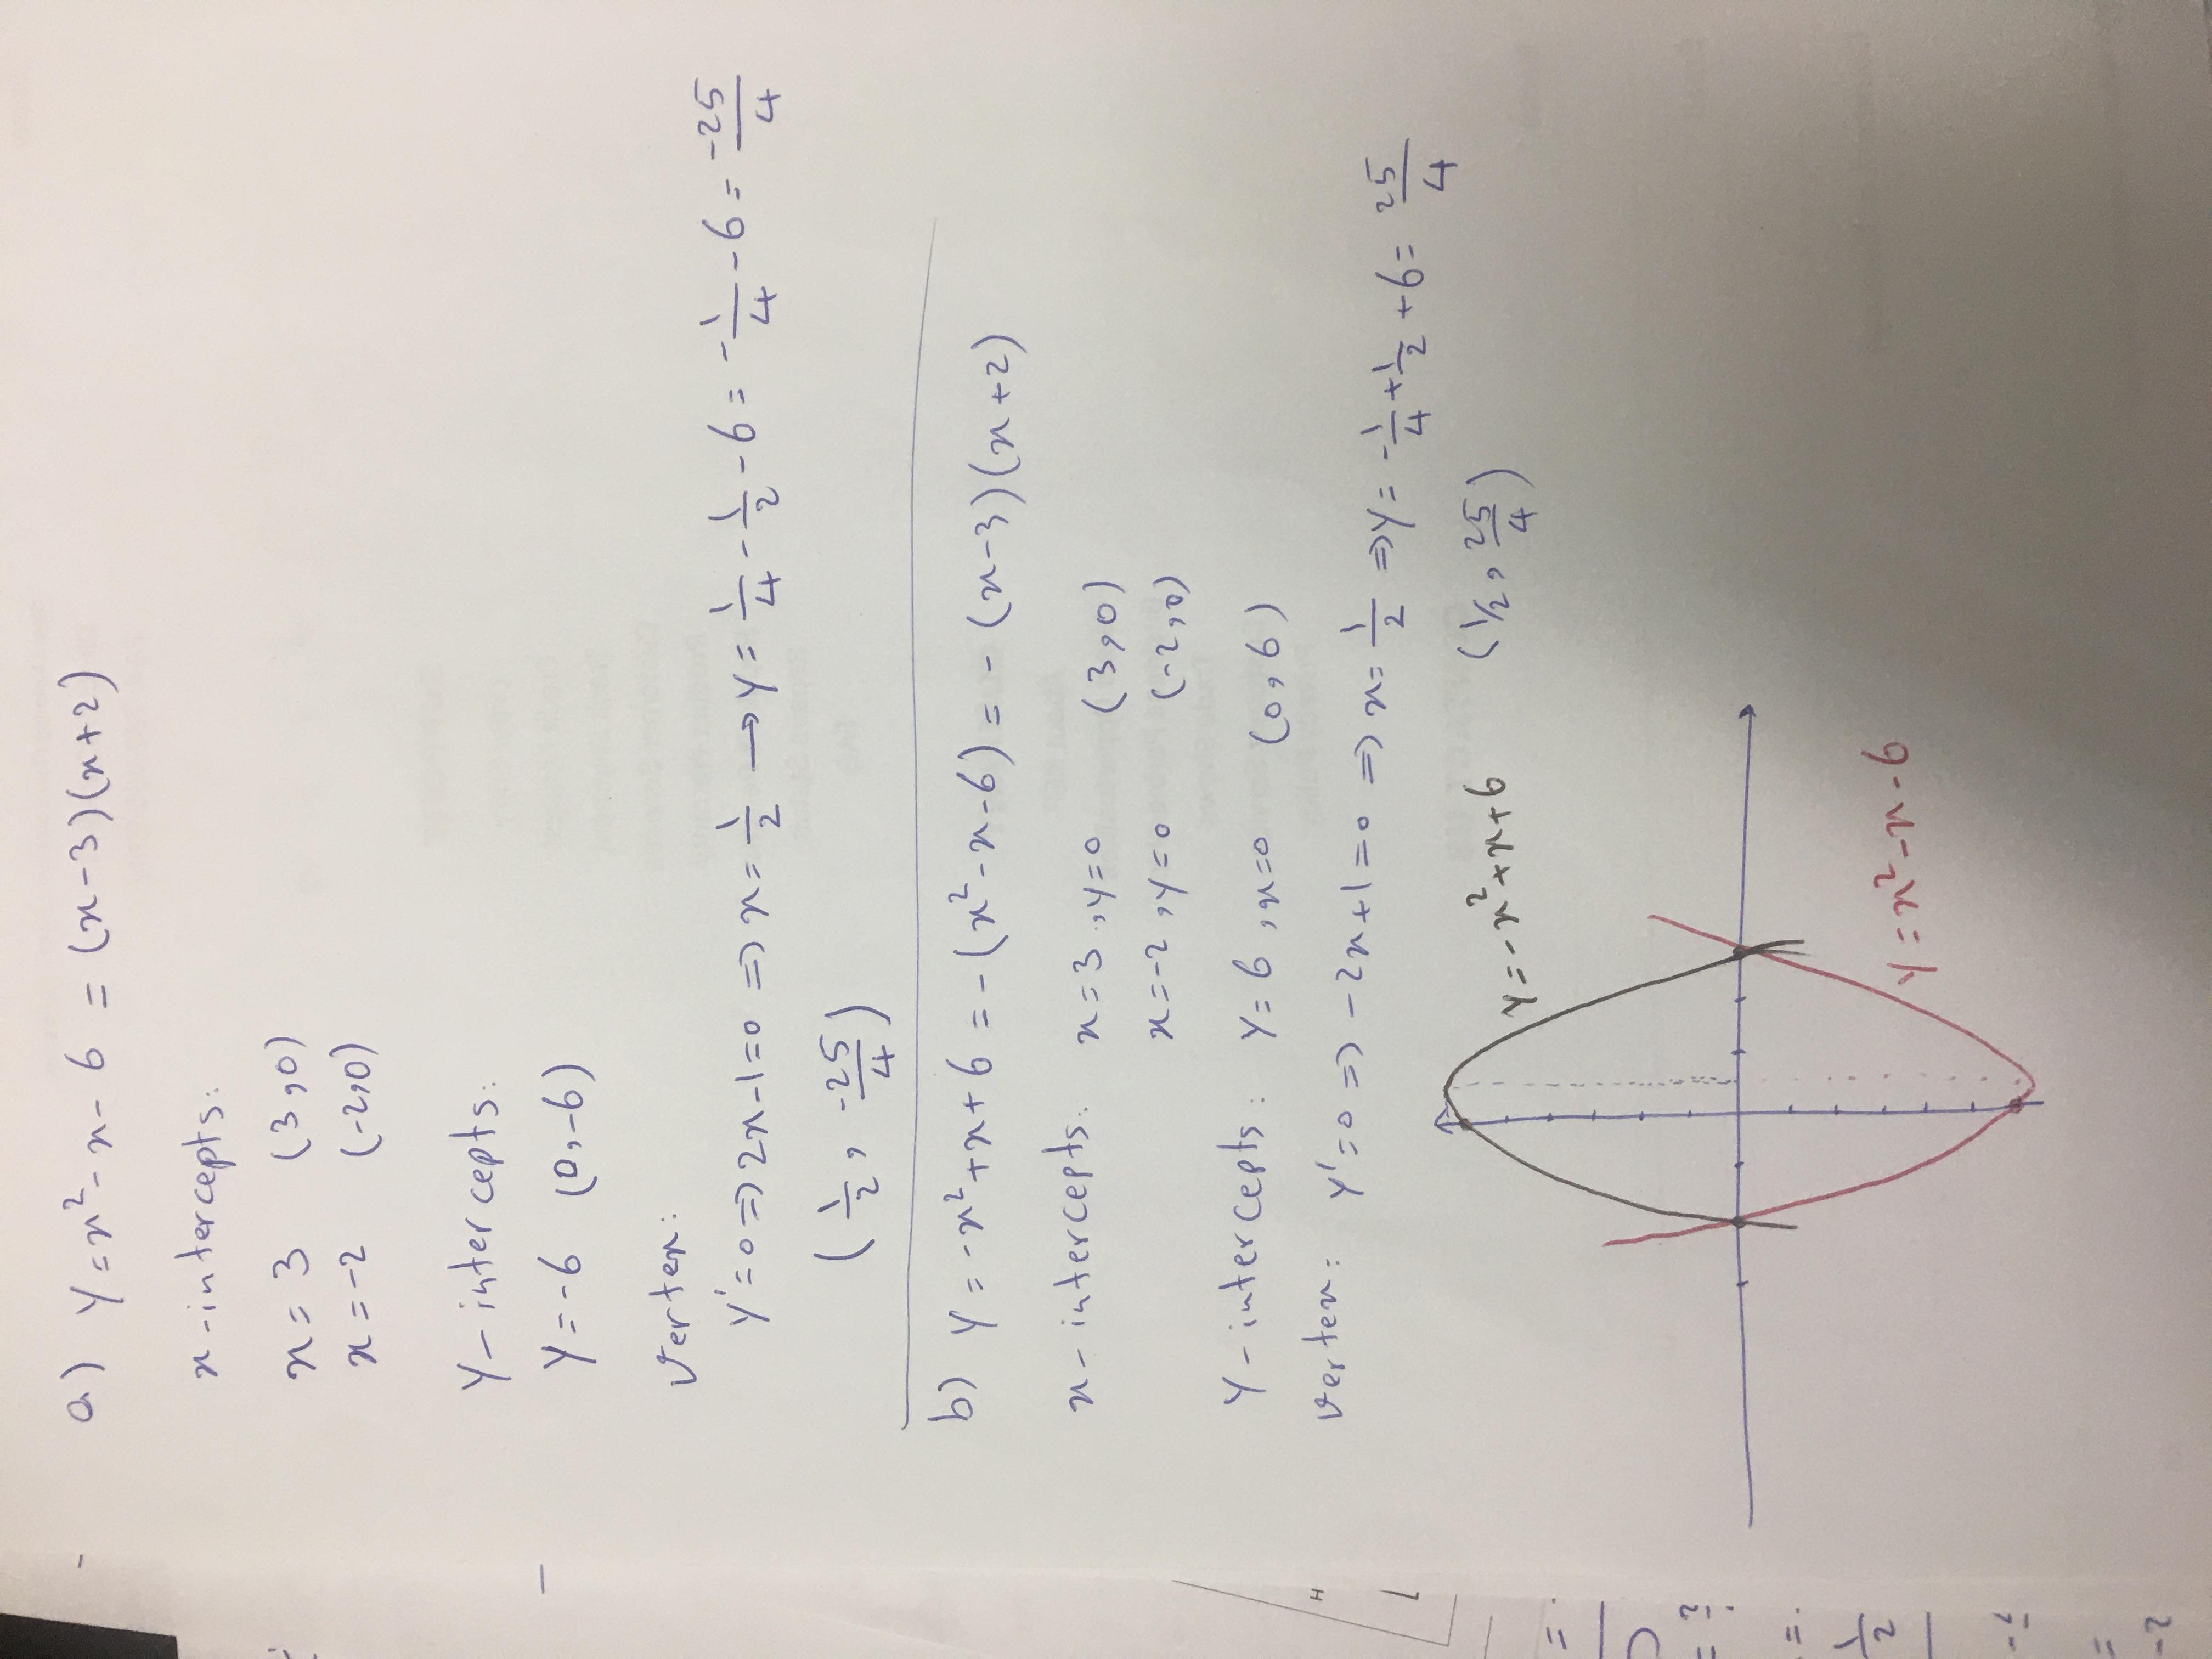 a) y = x² - x - 6 = (x-3)(x+2)
x-intercepts:
x = 3 (3,0)
x = -2 (-2,0)
y-intercepts:
y = -6 (0,-6)
vertex:
y' = 0 => 2x-1=0 => x = 1/2 → y = 1/4 - 1/2 - 6 = -1/4 - 6 = -25/4
(1/2, -25/4)
b) y = -x² + x + 6 = -(x²-x-6) = -(x-3)(x+2)
x-intercepts: x = 3, y = 0 (3,0)
x = -2, y = 0 (-2,0)
y-intercepts: y = 6, x = 0 (0,6)
vertex: y' = 0 => -2x+1=0 => x = 1/2 => y = -1/4 + 1/2 + 6 = 25/4
(1/2, 25/4)
y = -x² + x + 6
y = x² - x - 6